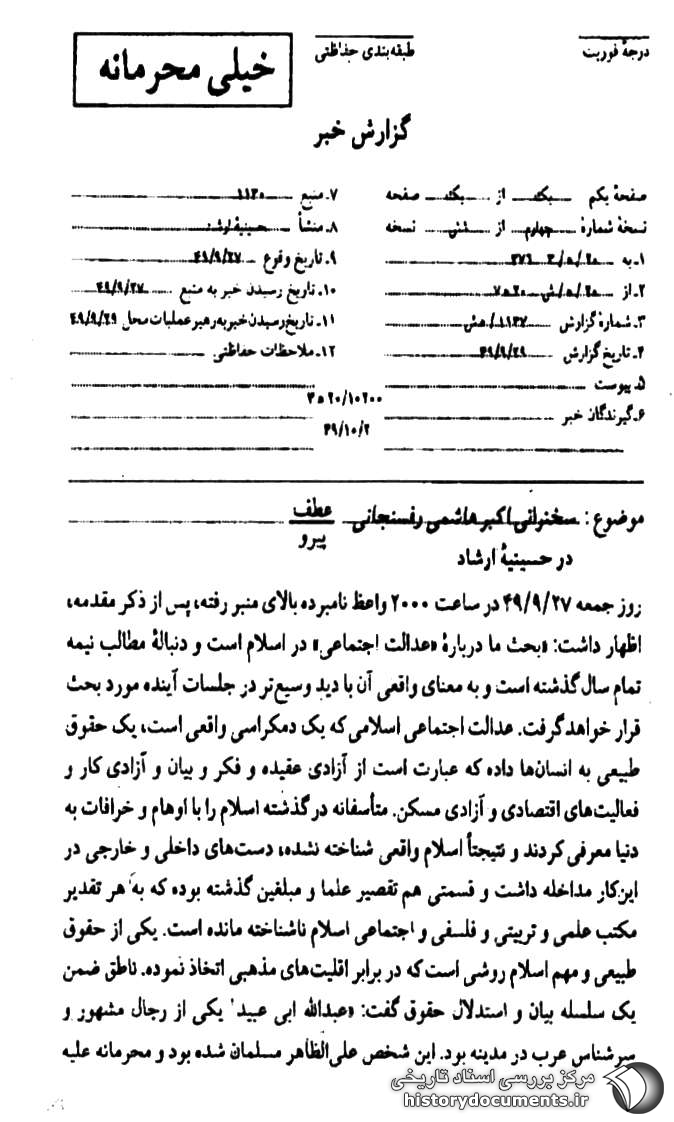 درجهٔ فوریت
طبقه‌بندی حفاظتی
خیلی محرمانه
گزارش خبر
صفحهٔ یکم یک از یک صفحه
نسخهٔ شمارهٔ چهارم از شش نسخه
۱ـ به ۲۰/ه/۳ ۳۷۶
۲ـ از ۲۰/ه/ش ۲۰ه۷
۳ـ شمارهٔ گزارش ۱۱۳۷/هش
۴ـ تاریخ گزارش ۴۹/۹/۲۹
۵ـ پیوست
۶ـ گیرندگان خبر
۷ـ منبع ۱۱۲۰
۸ـ منشأ حسینیهٔ ارشاد
۹ـ تاریخ وقوع ۴۹/۹/۲۷
۱۰ـ تاریخ رسیدن خبر به منبع ۴۹/۹/۲۷
۱۱ـ تاریخ رسیدن خبر به رهبر عملیات محل ۴۹/۹/۲۹
۱۲ـ ملاحظات حفاظتی
۳ه۲۰/۱۰۲۰۰
۴۹/۱۰/۲
موضوع: سخنرانی اکبر هاشمی رفسنجانی عطف
پیرو
در حسینیهٔ ارشاد
روز جمعه ۴۹/۹/۲۷ در ساعت ۲۰۰۰ واعظ نامبرده بالای منبر رفته، پس از ذکر مقدمه،
اظهار داشت: «بحث ما دربارهٔ «عدالت اجتماعی» در اسلام است و دنبالهٔ مطالب نیمه
تمام سال گذشته است و به معنای واقعی آن با دید وسیع‌تر در جلسات آینده مورد بحث
قرار خواهد گرفت. عدالت اجتماعی اسلامی که یک دمکراسی واقعی است، یک حقوق
طبیعی به انسان‌ها داده که عبارت است از آزادی عقیده و فکر و بیان و آزادی کار و
فعالیت‌های اقتصادی و آزادی مسکن. متأسفانه در گذشته اسلام را با اوهام و خرافات به
دنیا معرفی کردند و نتیجتاً اسلام واقعی شناخته نشده، دست‌های داخلی و خارجی در
این‌کار مداخله داشت و قسمتی هم تقصیر علما و مبلغین گذشته بوده که به هر تقدیر
مکتب علمی و تربیتی و فلسفی و اجتماعی اسلام ناشناخته مانده است. یکی از حقوق
طبیعی و مهم اسلام روشی است که در برابر اقلیت‌های مذهبی اتخاذ نموده. ناطق ضمن
یک سلسله بیان و استدلال حقوق گفت: «عبدالله ابی عبید' یکی از رجال مشهور و
سرشناس عرب در مدینه بود. این شخص علی‌الظاهر مسلمان شده بود و محرمانه علیه
مرکز بررسی اسناد تاریخی
historydocuments.ir